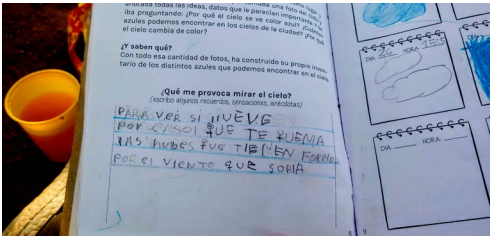 anotaba todas las ideas, datos que le parecían importantes
iba preguntando: ¿Por qué el cielo se ve color azul? ¿Cuántos
azules podemos encontrar en los cielos de la ciudad? ¿Por qué
el cielo cambia de color?
¿Y saben qué?
Con todo esa cantidad de fotos, ha construido su propio
tario de los distintos azules que podemos encontrar en el cielo.
¿Qué me provoca mirar el cielo?
(escribo algunos recuerdos, sensaciones, anécdotas)
PARA VER SI LLUEVE
POR EL SOL QUE TE KUEMA
LAS NUBES QUE TIENEN FORMA
POR EL VIENTO QUE SOPLA
DIA HORA 15:15
DIA HORA
8 9